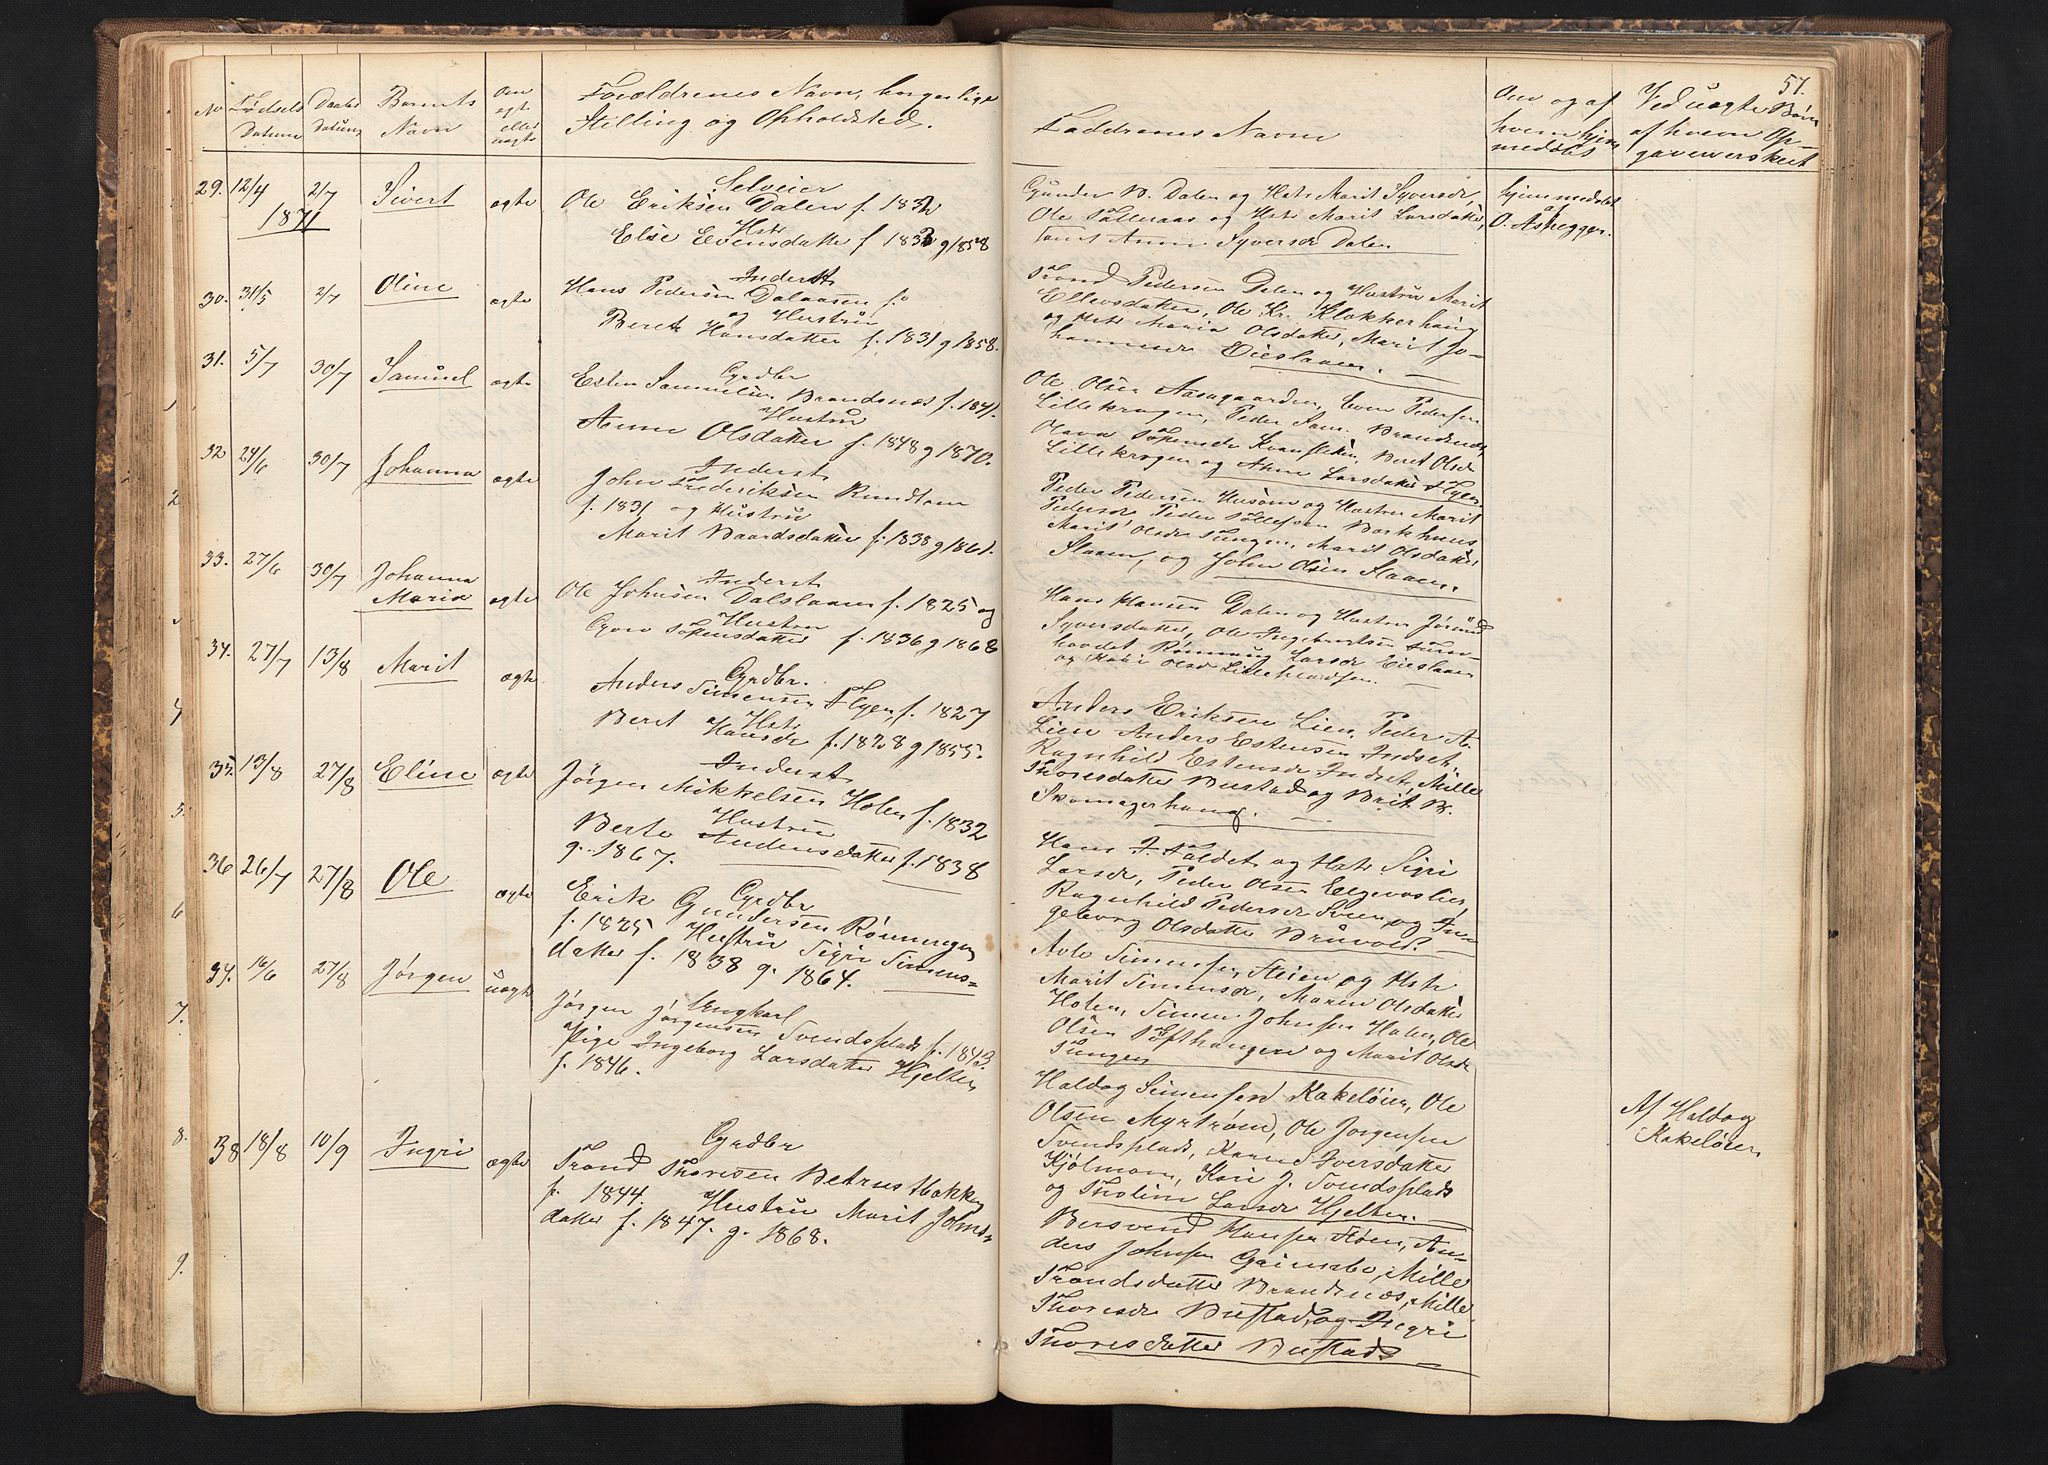 57.
No Fødsels Datum Daabs Datum Barnets Navn Om ægte eller uægte Forældrenes Navn, borgerlige Stilling og Opholdsted. Faddrenes Navne Om og af hvem hjemmedøbt Ved uægte Børn af hvem Opgaven er skeet
29. 12/4 1871 2/7 Sivert ægte
Selveier
Ole Eriksen Dalen f. 1832
Hstr
Else Evensdatter f 1832 g 1858
Gunder B. Dalen og Hstr Marit Syversdr
Ole Tollaas og Hstr Marit Larsdatter,
samt Anne Syversdr Dalen
hjemmedøbt
af
O. Aspeggen.
30. 31/5 2/7 Oline ægte
Inderst
Hans Pedersen Dalaasen f.
og Hustru
Beret Hansdatter f. 1831 g 1858.
Trond Pedersen Dalen og Hustru Marit
Ellevsdatter, Ole Kr. Klokkerhaug
og Hstr Maria Olsdatter, Marit Jo-
hannesdr Eieslaaen.
31. 5/7 30/7 Samuel ægte
Grdbr
Esten Samuelsen Brandsnæs f. 1841.
Hustru
Anne Olsdatter f. 1848 g 1870.
Ole Olsen Aasegaarden, Even Pedersen
Lillekrogen, Peder Sam. Brandsnæs,
Olava Tøkensdr Kvernflekken, Beret Olsdr
Lillekrogen og Anne Larsdatter Flyen
32 24/6 30/7 Johanna ægte
Inderst
John Frederiksen Rundtom
f. 1831 og Hustru
Marit Baardsdatter f. 1838 g 1861.
Peder Pedersen Husom og Hustru Marit
Pedersdr Peder Tollefsen Barkhuus
Marit Olsdr Tungen, Marit Olsdatter
Slaaen, og John Olsen Slaaen.
33. 27/6 30/7 Johanna
Maria ægte
Inderst
Ole Johnsen Dalslaaen f. 1825 og
Hustru
Goro Tøkensdatter f. 1836 g 1868
Hans Hansen Dalen og Hustru Jørund
Syversdatter, Ole Ingebrigtsen
Rønnaug Larsdr Eieslaaen
og Kari Olsdr
34. 27/7 13/8 Marit ægte
Grdbr.
Anders Simensen Flyen, f. 1827
Hstr
Beret Hansdr f. 1828 g 1855.
Anders Eriksen Lien, Peder A.
Lien Anders Estensen Indset,
Ragnhild Estensdr Indset, Mille
Thoresdatter Bustad og Brit B.
Skomagerhaug.
35. 13/8 27/8 Eline ægte
Inderst
Jørgen Mikkelsen Holen f. 1832
Hustru
Berte Andersdatter f. 1838
g. 1867.
Hans J. Foldet og Hstr Sigri
Larsdr, Peder Olsen Elgevaslien,
Ragnhild Pedersdr Svien og In-
geborg Olsdatter Bruvold.
36 26/7 27/8 Ole ægte
Grdbr
Erik Gundersen Rønningen
f. 1825 Hustru Sigri Simens-
datter f. 1838 g. 1864.
Avle Simensen Steien og Hstr
Marit Simensdr, Maren Olsdatter
Holen, Simen Johnsen Holen, Ole
Olsen Tofthaugen og Marit Olsdr
Tungen
37. 16/6 27/8 Jørgen uægte
Ungkarl
Jørgen Jørgensen Svendsplads f. 1843.
Pige Ingeborg Larsdatter Hjelten
f. 1846.
Haldog Simensen Kakeløien, Ole
Olsen Myrtrøen, Ole Jørgensen
Svendsplads, Karen Iversdatter
Kjølmoen, Kari J. Svendsplads
og Tholine Larsdr Hjelten.
Af Haldog
Kakeløien
38 18/8 10/9 Ingri ægte
Grdbr
Trond Thoresen Betrusbakken
f. 1844. Hustru Marit Johns-
datter f. 1847. g. 1868.
Bersvend Hansen Støen, An-
ders Johnsen Grimsbo, Mille
Trondsdatter Brandsnæs, Mille
Thoresdr Bustad, og Ingri
Thoresdatter Bustad